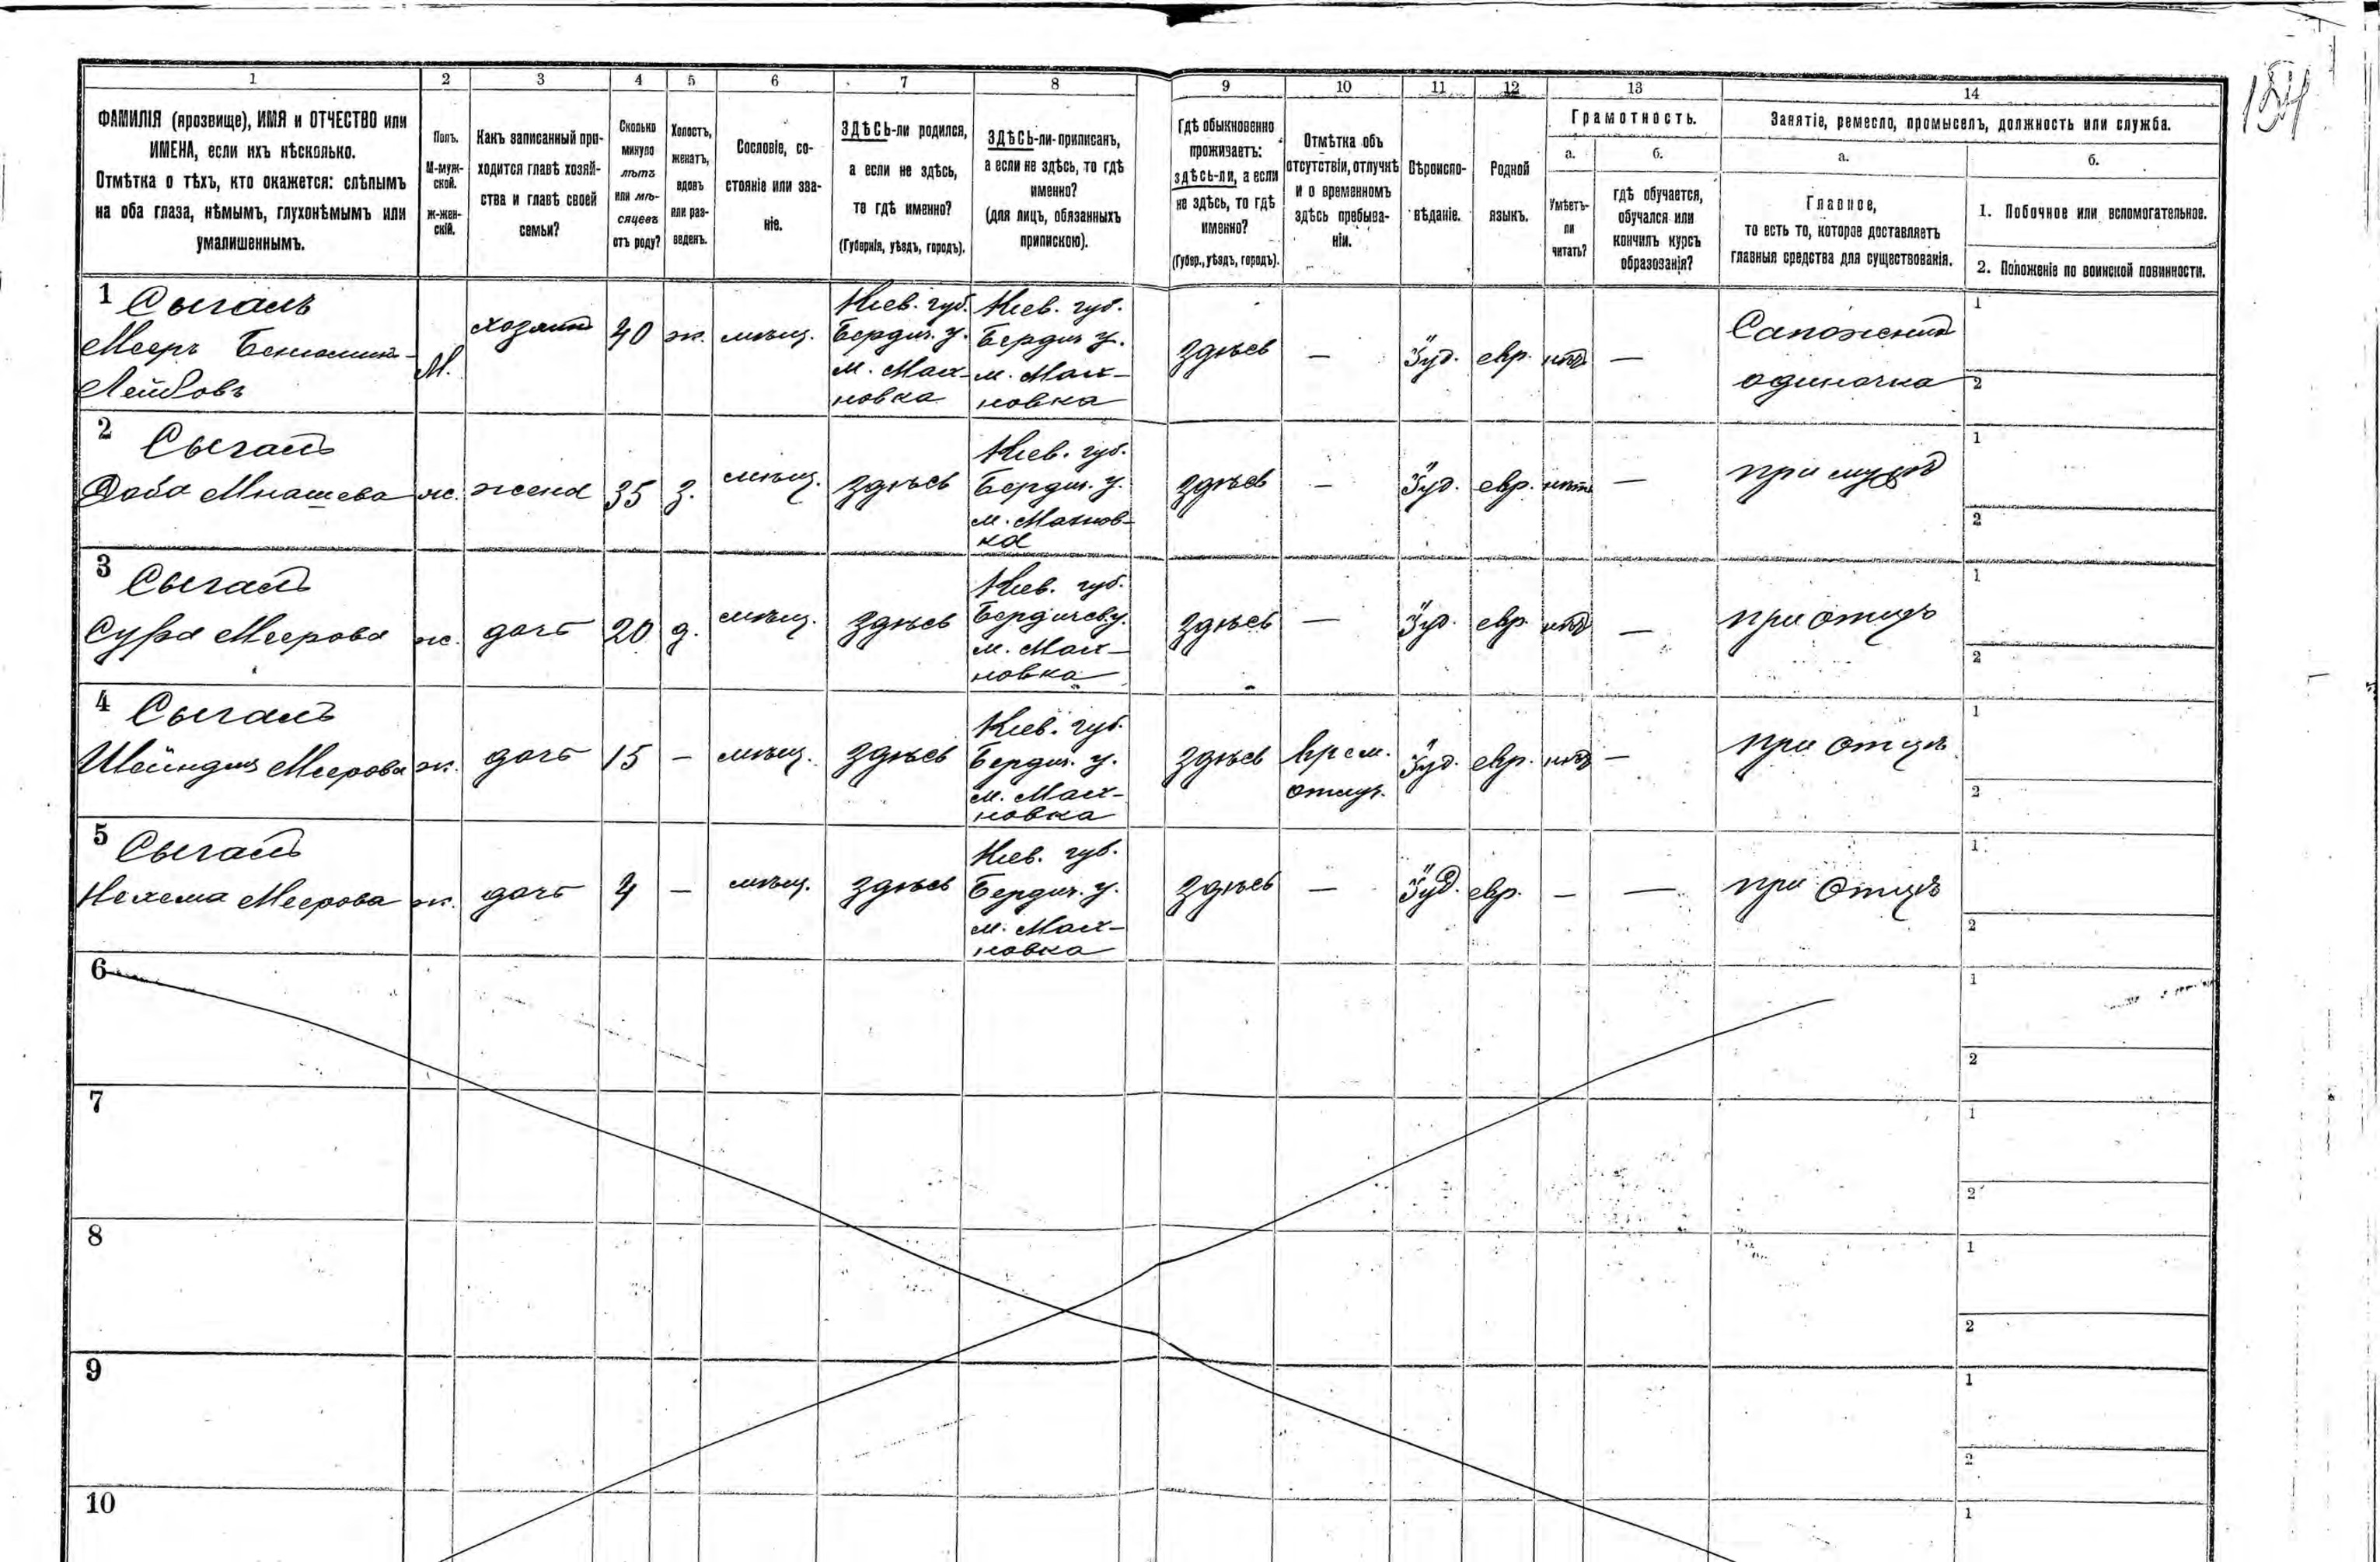 154
1 2 3 4 5 6 7 8 9 10 11 12 13 14
ФАМИЛІЯ (прозвище), ИМЯ и ОТЧЕСТВО или
ИМЕНА, если ихъ нѣсколько.
Отмѣтка о тѣхъ, кто окажется: слѣпымъ
на оба глаза, нѣмымъ, глухонѣмымъ или
умалишеннымъ.
Полъ.
М-муж-
ской.
Ж-жен-
скій.
Какъ записанный при-
ходится главѣ хозяй-
ства и главѣ своей
семьи?
Сколько
минуло
лѣтъ
или мѣ-
сяцевъ
отъ роду?
Холостъ,
женатъ,
вдовъ
или раз-
веденъ.
Сословіе, со-
стояніе или зва-
ніе.
ЗДѢСЬ-ли родился,
а если не здѣсь,
то гдѣ именно?
(Губернія, уѣздъ, городъ).
ЗДѢСЬ-ли-приписанъ,
а если не здѣсь, то гдѣ
именно?
(для лицъ, обязанныхъ
припискою).
Гдѣ обыкновенно
проживаетъ:
здѣсь-ли, а если
не здѣсь, то гдѣ
именно?
(Губер., уѣздъ, городъ).
Отмѣтка объ
отсутствіи, отлучкѣ
и о временномъ
здѣсь пребыва-
ніи.
Вѣроиспо-
вѣданіе.
Родной
языкъ.
Грамотность.
а.
Умѣетъ-
ли
читать?
б.
гдѣ обучается,
обучался или
кончилъ курсъ
образованія?
Занятіе, ремесло, промыселъ, должность или служба.
а.
Главное,
то есть то, которое доставляетъ
главныя средства для существованія.
б.
1. Побочное или вспомогательное.
2. Положеніе по воинской повинности.
1 Сыгалъ
Мееръ Беніоминъ-
Лейбовъ
М.
хозяинъ
40
ж.
мѣщ.
Кіев. губ.
Бердич. у.
м. Мах-
новка
Кіев. губ.
Бердич у.
м. Мах-
новка
здѣсь
—
Іуд.
евр.
нѣтъ
—
Сапожникъ
одиночка
1
2
2 Сыгалъ
Доба Мнашева
ж.
жена
35
з.
мѣщ.
здѣсь
Кіев. губ.
Бердич. у.
м. Махнов-
ка
здѣсь
—
Іуд.
евр.
нѣтъ
—
при мужѣ
1
2
3 Сыгалъ
Сура Меерова
ж.
дочь
20
д.
мѣщ.
здѣсь
Кіев. губ.
Бердичев.у.
м. Мах-
новка
здѣсь
—
Іуд.
евр.
нѣтъ
—
при отцѣ
1
2
4 Сыгалъ
Шейндля Меерова
ж.
дочь
15
—
мѣщ.
здѣсь
Кіев. губ.
Бердич. у.
м. Мах-
новка
здѣсь
Врем.
отлуч.
Іуд.
евр.
нѣтъ
—
при отцѣ
1
2
5 Сыгалъ
Нехема Меерова
ж.
дочь
4
—
мѣщ.
здѣсь
Кіев. губ.
Бердич. у.
м. Мах-
новка
здѣсь
—
Іуд.
евр.
—
—
при отцѣ
1
2
6
1
2
7
1
2
8
1
2
9
1
2
10
1